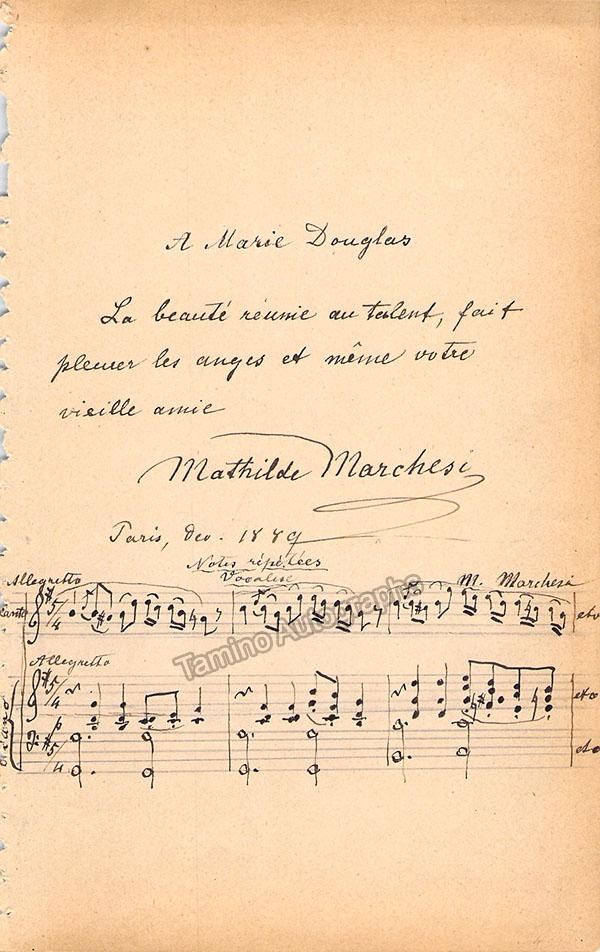 A Marie Douglas
La beauté réunie au talent, fait
pleurer les anges et même votre
vieille amie
Mathilde Marchesi
Paris, dec. 1889
Notes répétées
Vocalise
Allegretto
M. Marchesi
Canto
5/4
etc
Tamino Autographs
Allegretto
5/4
etc
Piano
p
5/4
etc